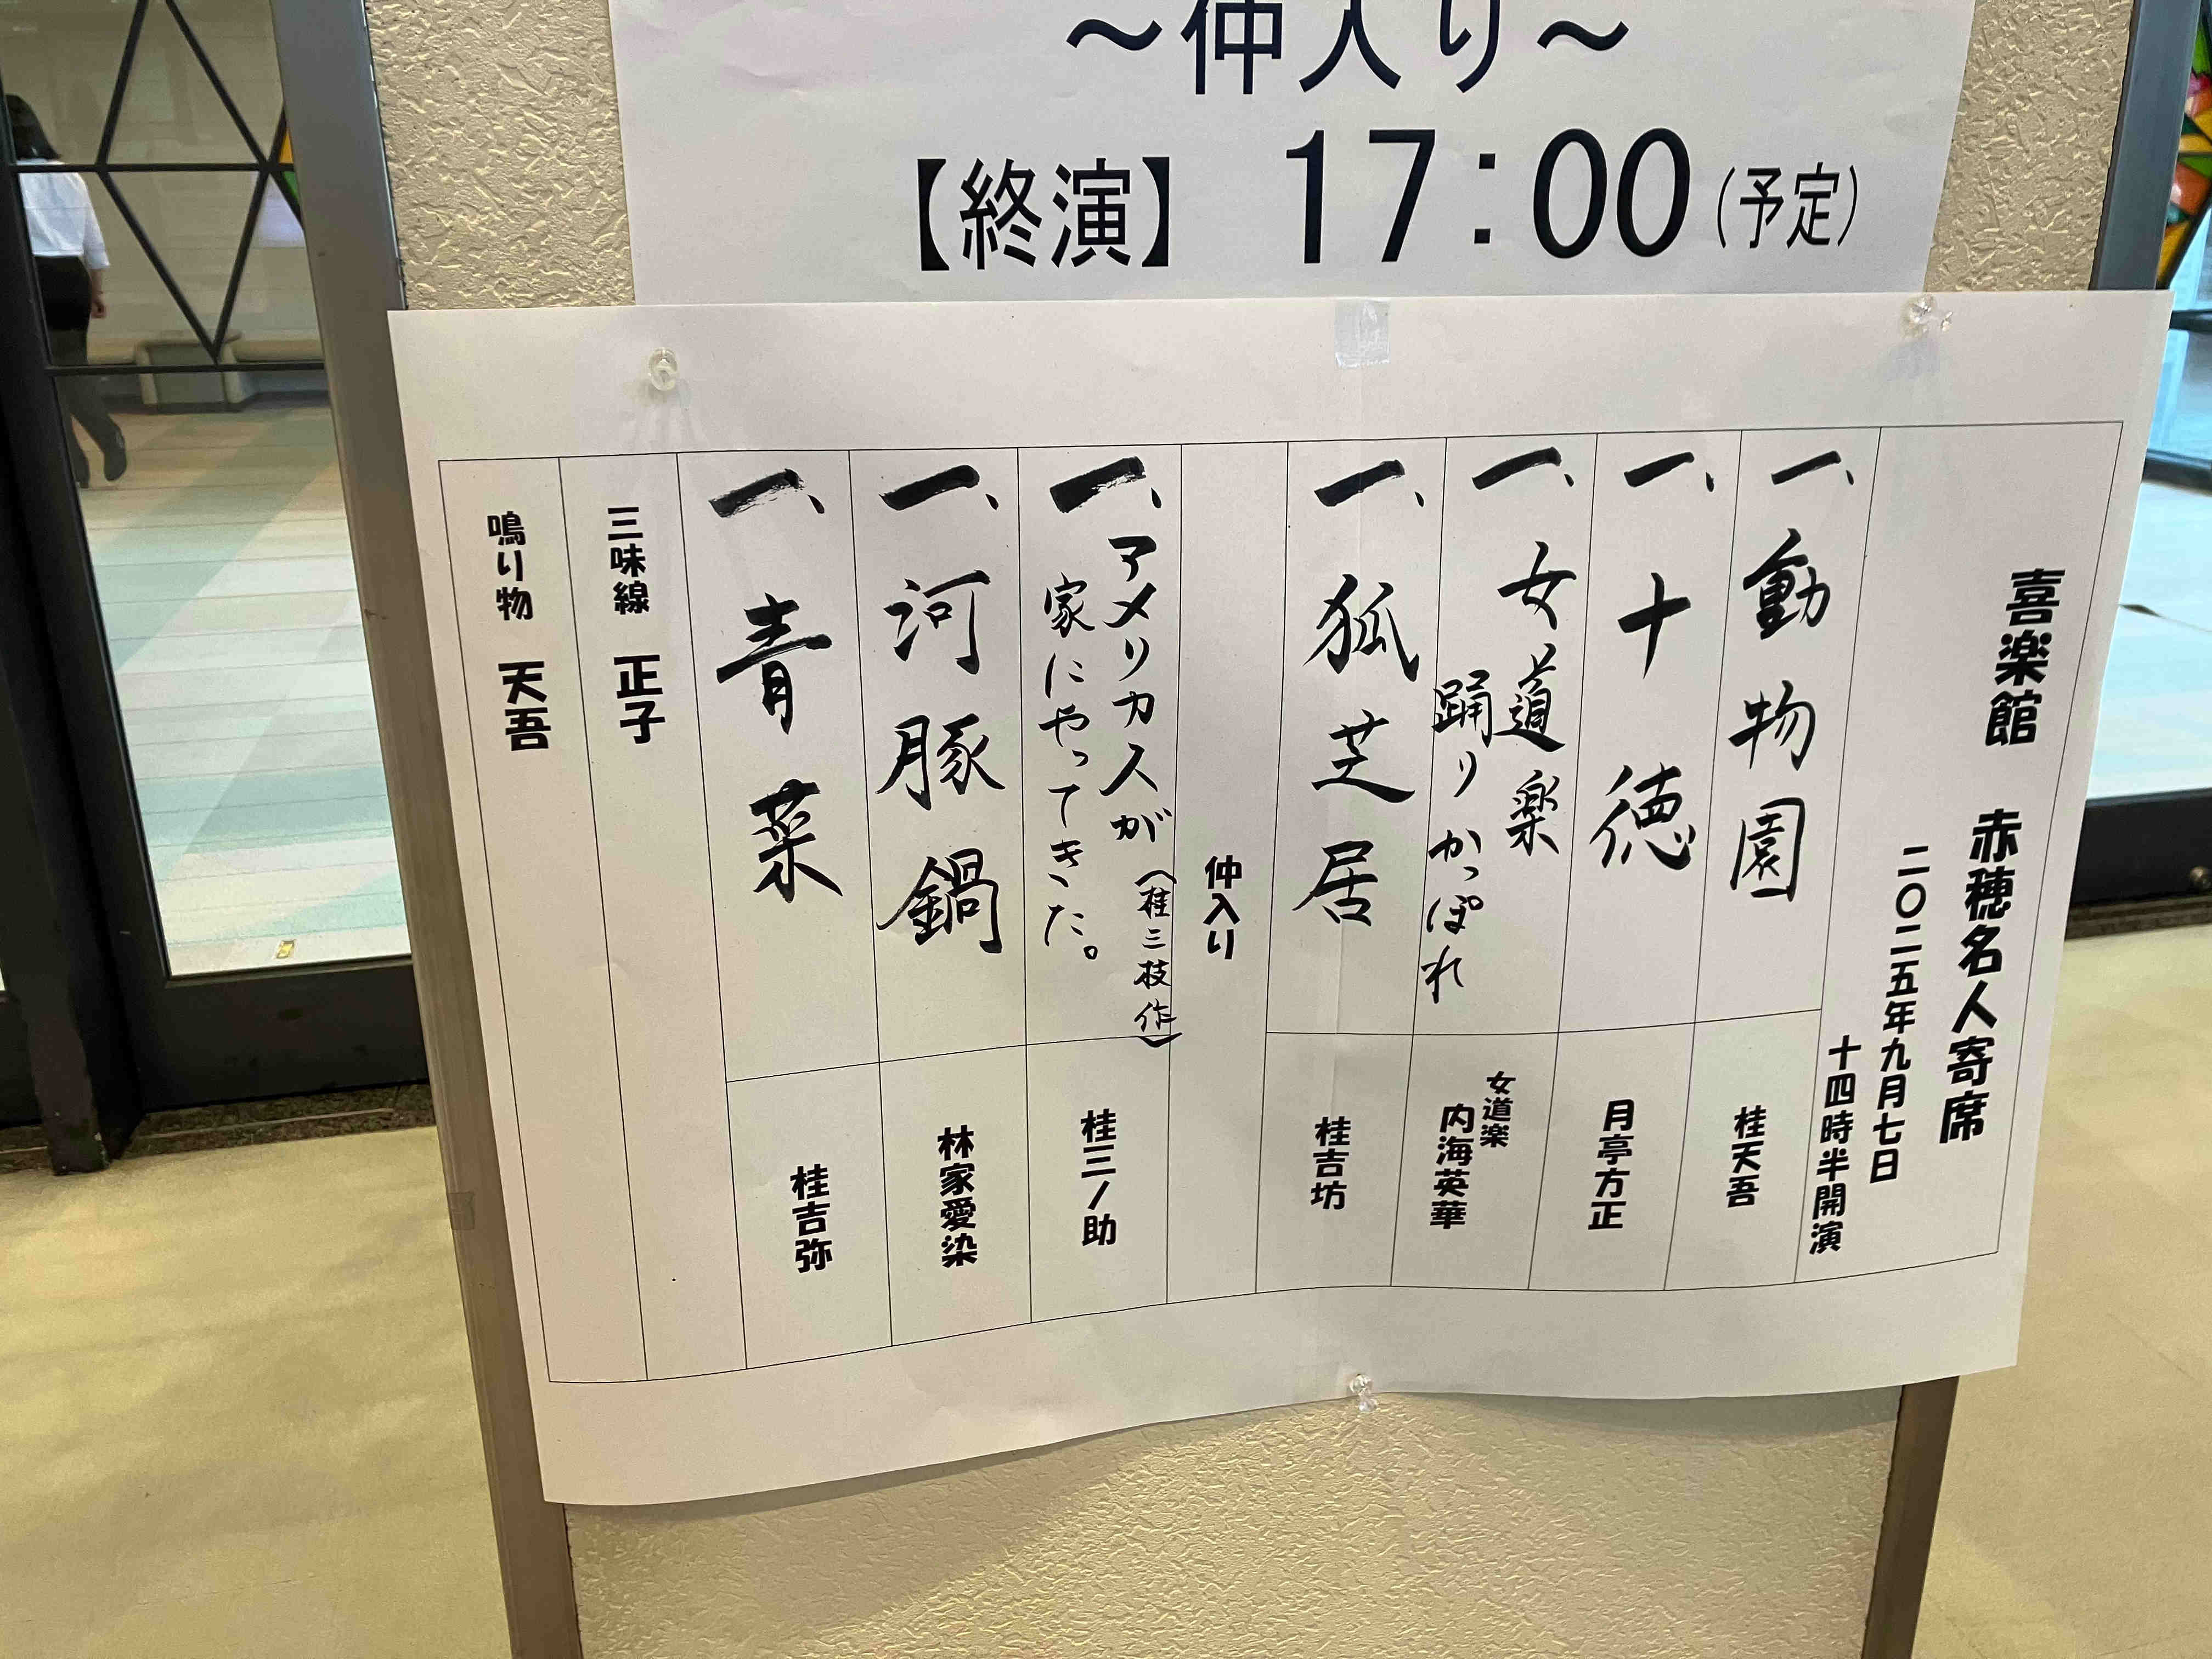 ～仲入り～
【終演】 17：00（予定）
喜楽館 赤穂名人寄席
二〇二五年九月七日
十四時半開演
一、動物園
桂天吾
一、十徳
月亭方正
一、女道楽
踊りかっぽれ
女道楽
内海英華
一、狐芝居
桂吉坊
仲入り
一、アメリカスが（桂三枝作）
家にやってきた。
桂三ノ助
一、河豚鍋
林家愛染
一、青菜
桂吉弥
三味線 正子
鳴り物 天吾